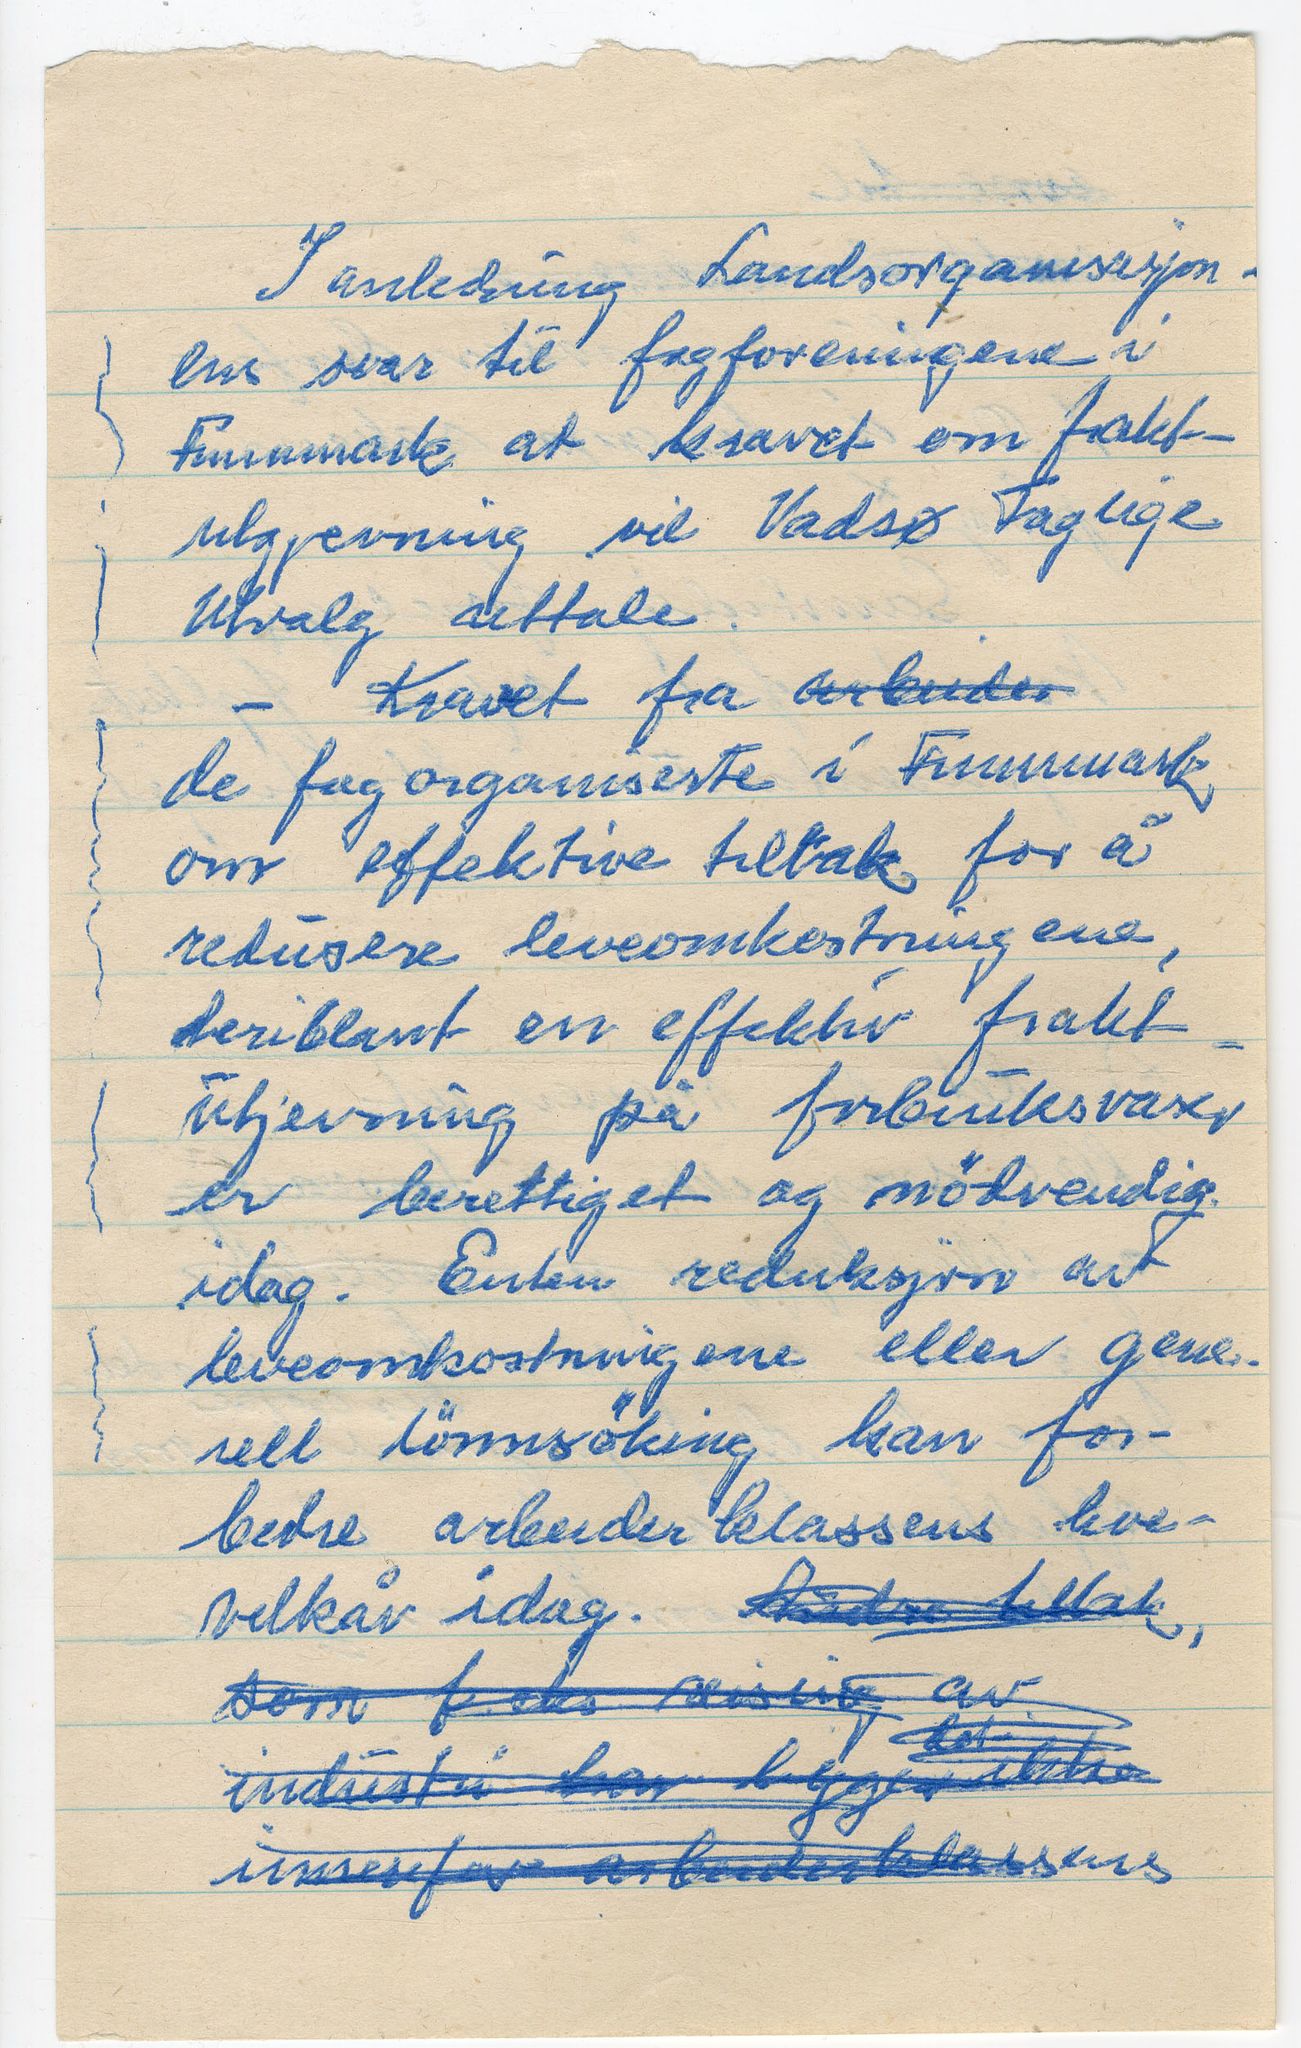 I anledning Landsorganisasjon-
ens svar til fagforeningene i
Finnmark at kravet om frakt-
utgjevning vil Vadsø Faglige
Utvalg uttale.
- Kravet fra arbeider
de fagorganiserte i Finnmark
om effektive tiltak for å
redusere leveomkostningene,
deriblant en effektiv frakt-
utjevning på forbruksvarer
er berettiget og nödvendig
idag. Enten reduksjon av
leveomkostningene eller gene-
rell lönnsöking kan for-
bedre arbeiderklassens leve-
velkår idag. tiltak,
som f. eks reising av
industri kan
arbeiderklassens